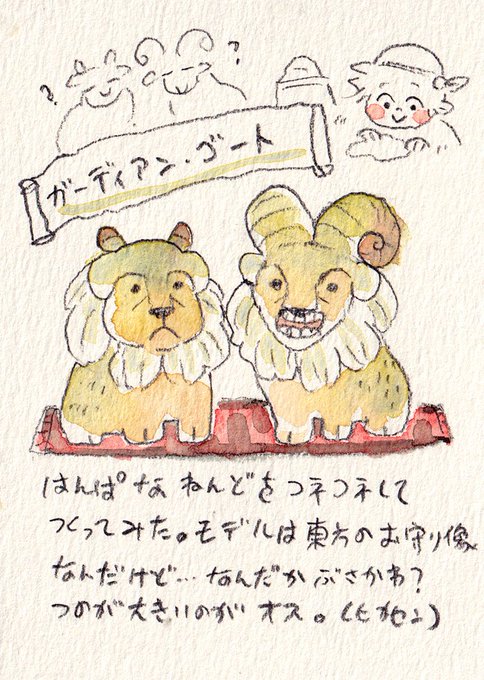 ? ?
ガーディアン・ゴート
はんぱな ねんどを コネコネして
つくってみた。モデルは東方のお守り像
なんだけど…なんだかぶさかわ?
つのが大きいのが オス。(ヒカセン)